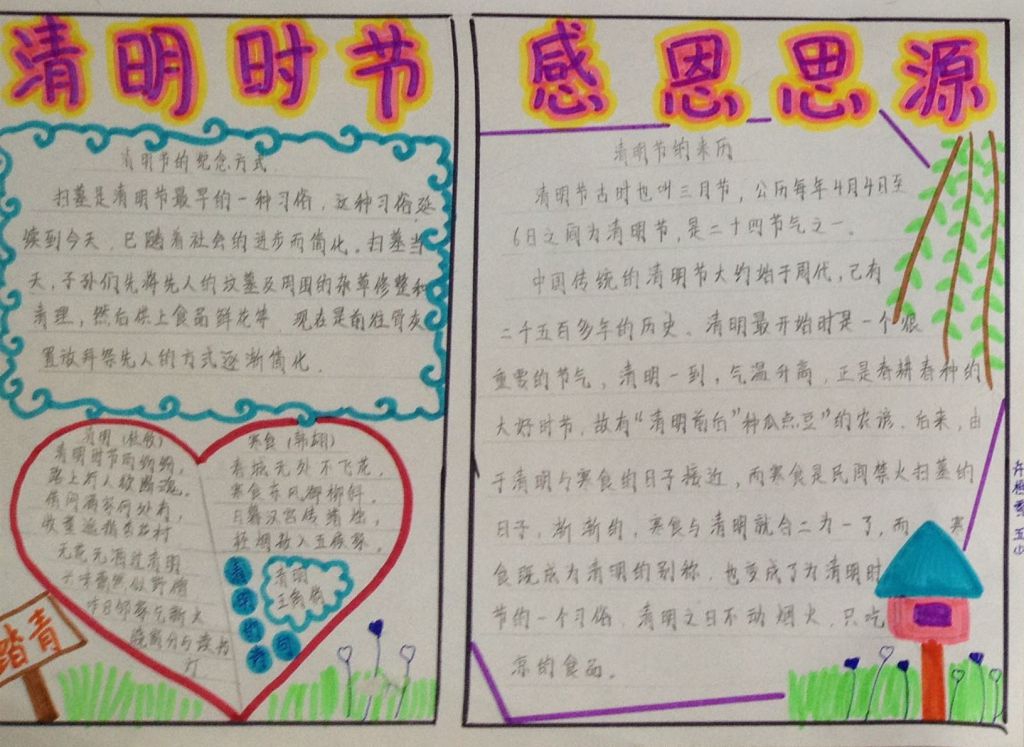 清明时节
清明节的纪念方式
扫墓是清明节最早的一种习俗，这种习俗延
续到今天，已随着社会的进步而简化。扫墓当
天，子孙们先将先人的坟墓及周围的杂草修整和
清理，然后供上食品鲜花等，现在是前往骨灰
置放拜祭先人的方式逐渐简化.
清明（杜牧）
清明时节雨纷纷，
路上行人欲断魂。
借问酒家何处有，
牧童遥指杏花村
无花无酒过清明
兴味萧然似野僧
昨日邻家乞新火
晓窗分与读书
灯
寒食（韩翃）
春城无处不飞花，
寒食东风御柳斜。
日暮汉宫传蜡烛，
轻烟散入五侯家。
清明
王禹偁
踏青
感恩思源
清明节的来历
清明节古时也叫三月节，公历每年4月4日至
6日之间为清明节，是二十四节气之一。
中国传统的清明节大约始于周代，己有
二千五百多年的历史。清明最开始时是一个很
重要的节气，清明一到，气温升高，正是春耕春种的
大好时节，故有“清明前后”种瓜点豆”的农谚。后来，由
于清明与寒食的日子接近，而寒食是民间禁火扫墓的
日子，渐渐的，寒食与清明就合二为一了，而寒
食既成为清明的别称，也变成了为清明时
节的一个习俗，清明之日不动烟火，只吃
凉的食品。